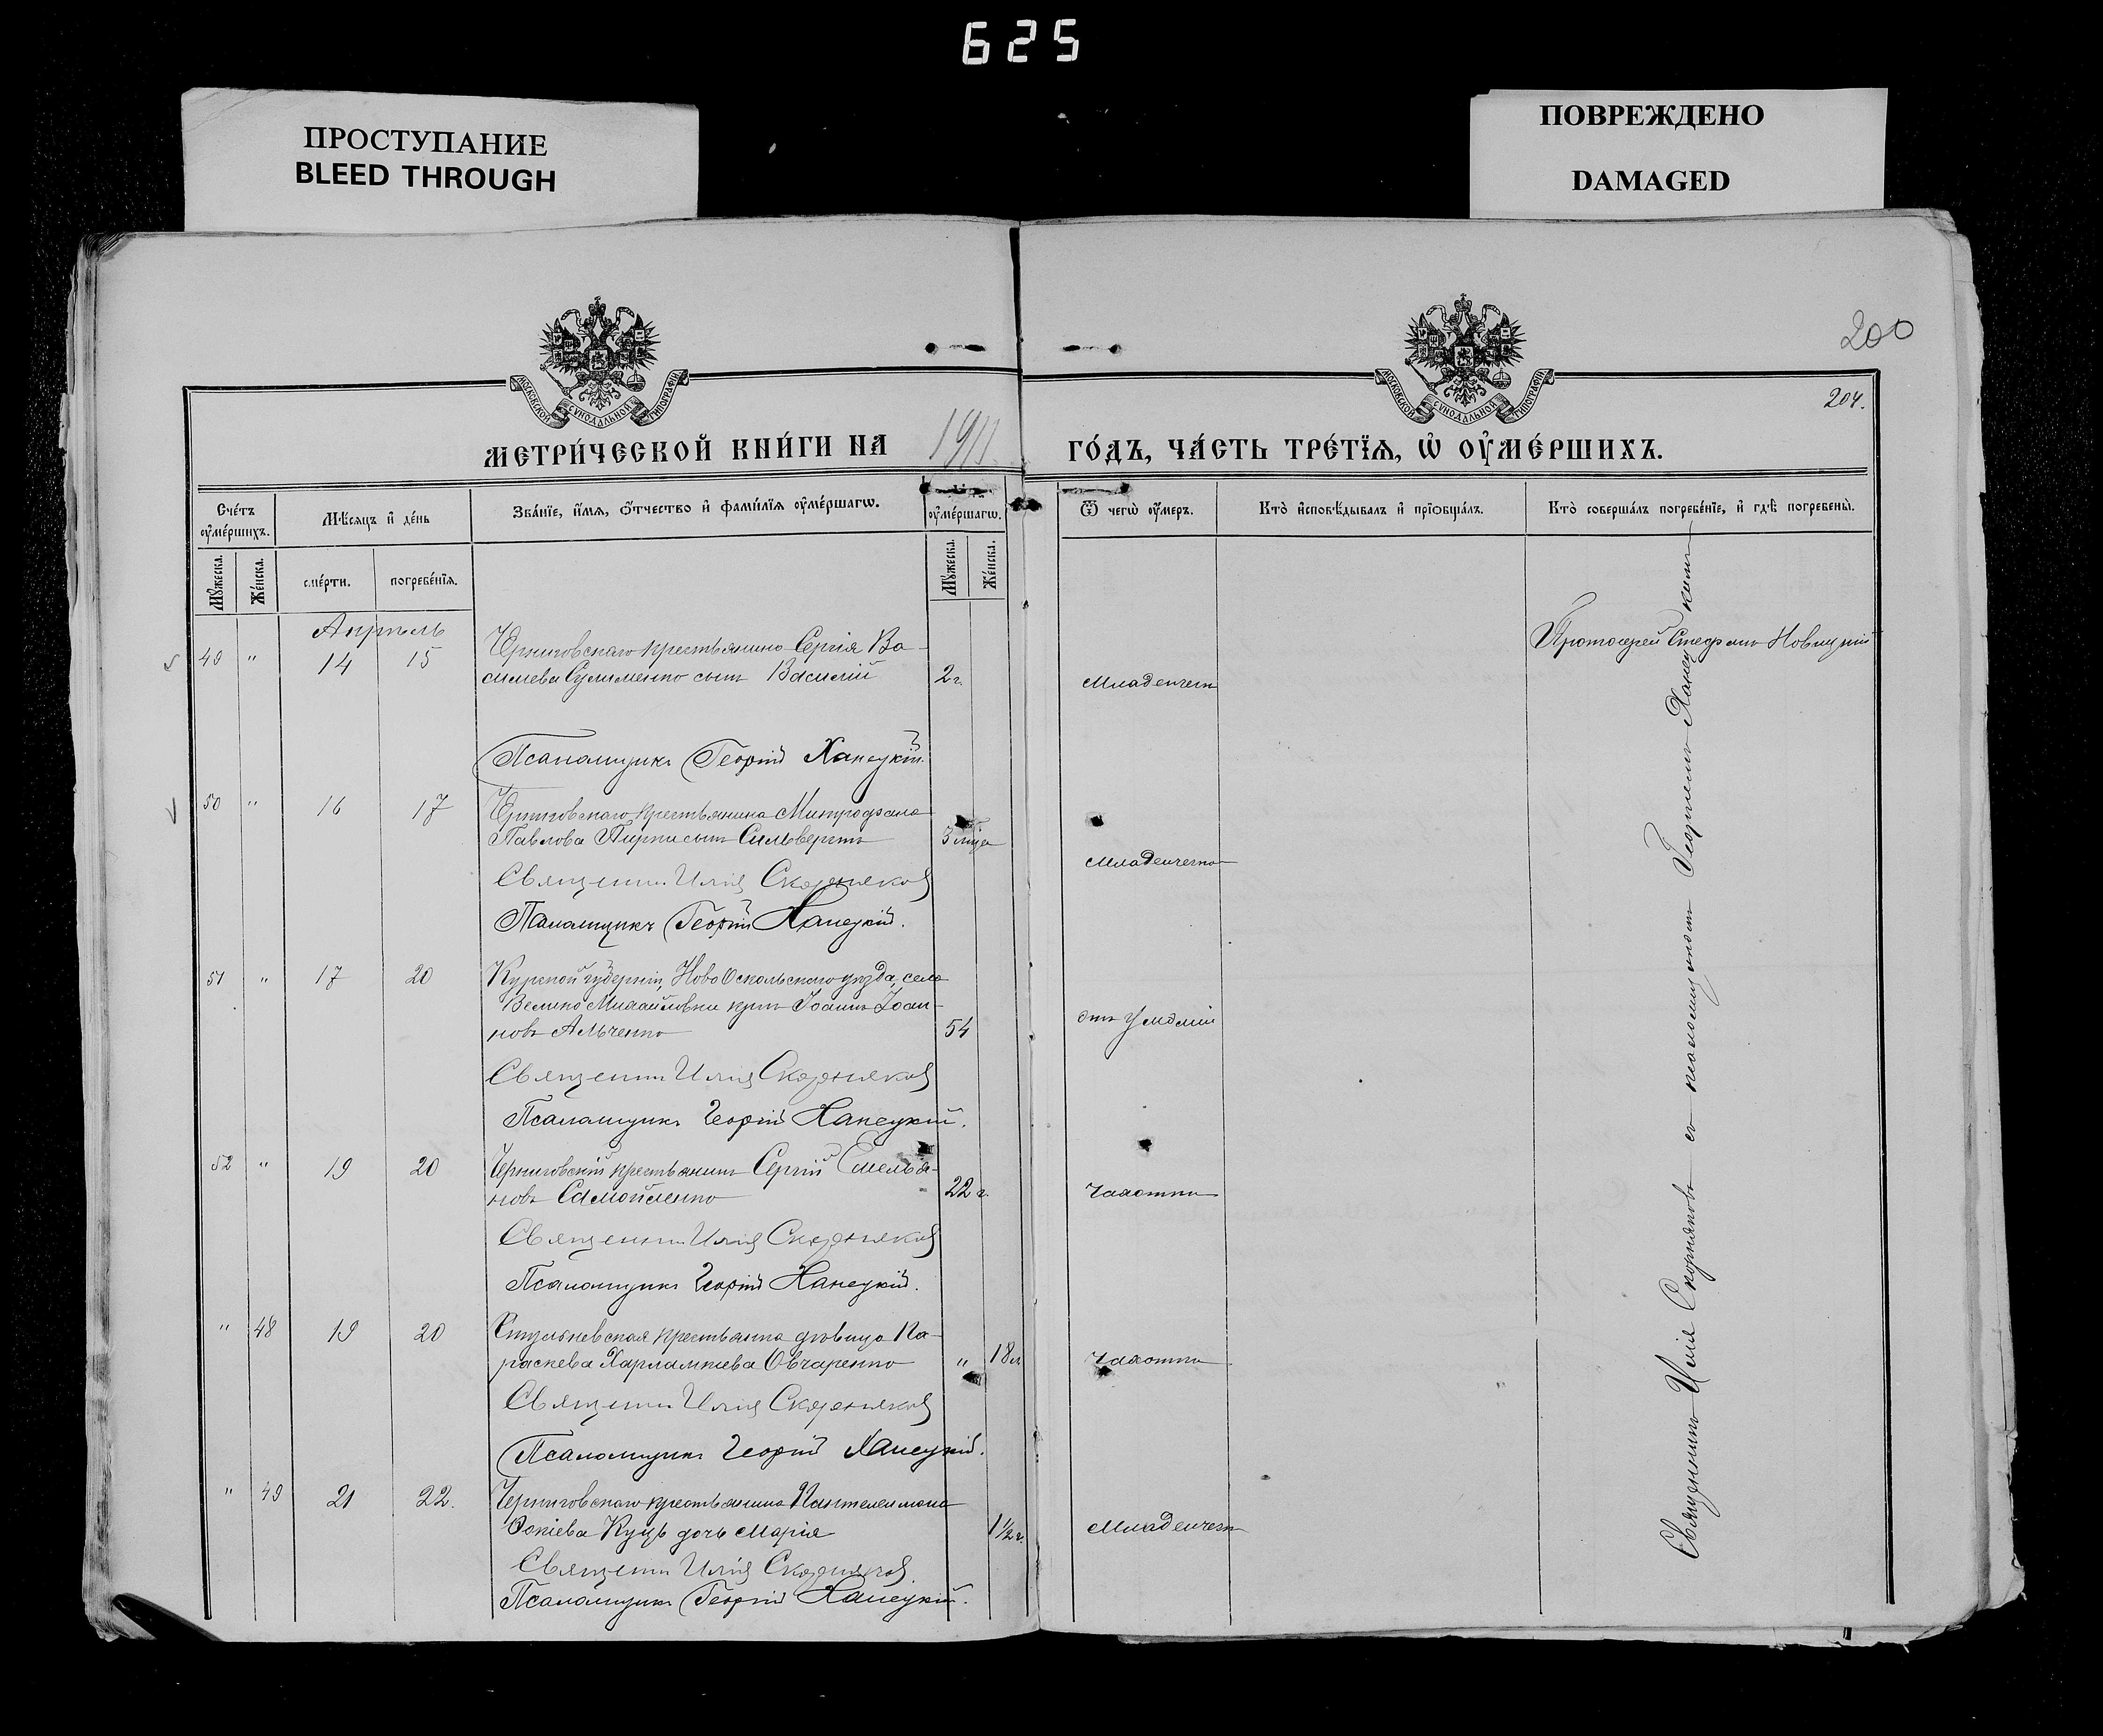 625
ПРОСТУПАНИЕ
BLEED THROUGH
ПОВРЕЖДЕНО
DAMAGED
200
204.
МОСКОВСКОЙ СѴНОДАЛЬНОЙ ТИПОГРАФІИ
МОСКОВСКОЙ СѴНОДАЛЬНОЙ ТИПОГРАФІИ
МЕТРИ́ЧЕСКОЙ КНИ́ГИ НА 1911 ГО́ДЪ, ЧА́СТЬ ТРЕ́ТЇѦ, Ѡ҆ ОУ҆МЕ́РШИХЪ.
Сче́тъ оу҆ме́ршихъ.
Мѣ́сяцъ и҆ де́нь
Зва́нїе, и҆́мѧ, ѻ҆́тчество и҆ фами́лїѧ оу҆ме́ршагѡ.
оу҆ме́ршагѡ.
Ѿ чегѡ̀ оу҆́меръ.
Кто̀ и҆сповѣ́дывалъ и҆ прїѡбща́лъ.
Кто̀ соверша́лъ погребе́нїе, и҆ гдѣ̀ погребены̀.
Мꙋ́жеска.
Же́нска.
сме́рти.
погребе́нїѧ.
Мꙋ́жеска.
Же́нска.
Апрѣль
49 " 14 15 Черниговскаго крестьянина Сергія Ва-
силева Сулименко сынъ Василій 2 г. Младенческ
Протоіерей Стефанъ Новицкій
Псаломщикъ Георгій Ханецкій.
50 " 16 17 Черниговскаго крестьянина Митрофана
Павлова сынъ Сильверстъ 3 мѣс Младенческ
Священникъ Илія Скорняков
Псаломщикъ Георгій Ханецкій.
51 " 17 20 Курской губерніи, Ново Оскольскаго уѣзда, села
Велико Михайловки крест Іоаннъ Іоан-
новъ Альченко 54 отъ
Священникъ Илія Скорняков
Псаломщикъ Георгій Ханецкій.
52 " 19 20 Черниговскій крестьянинъ Сергій Емелья-
новъ Самойленко 22 г. Чахотки
Священникъ Илія Скорняков
Псаломщикъ Георгій Ханецкій.
" 48 19 20 крестьянка дѣвица Па-
раскева Харлампіева Овчаренко " 18 л Чахотки
Священникъ Илія Скорняков
Псаломщикъ Георгій Ханецкій.
" 49 21 22. Черниговскаго крестьянина Пантелеимона
Фокіева Куць дочь Марія 1 1/2 г. Младенческ
Священникъ Илія Скорняков.
Псаломщикъ Георгій Ханецкій.
Священникъ Илія Скорняковъ съ псаломщикомъ Георгіемъ Ханецкимъ